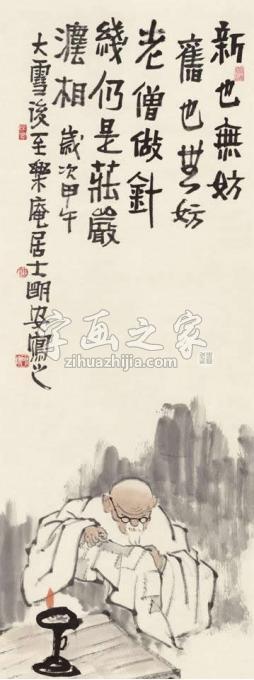 新也無妨
舊也無妨
老僧做針
綫仍是莊嚴
濃相 歲次甲午
大雪後至樂庵居士明安寫之
字画之家
zihuazhijia.com